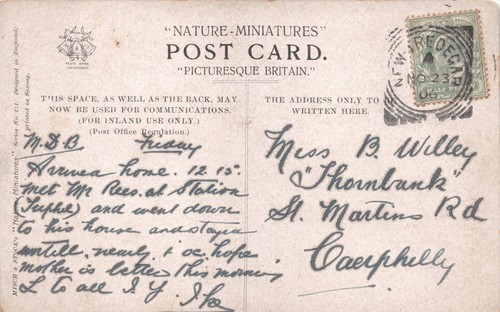 "NATURE-MINIATURES"
POST CARD.
"PICTURESQUE BRITAIN."
THIS SPACE, AS WELL AS THE BACK, MAY
NOW BE USED FOR COMMUNICATIONS.
(FOR INLAND USE ONLY.)
(Post Office Regulation.)
THE ADDRESS ONLY TO BE
WRITTEN HERE.
NEW TREDEGAR
NO 23
06
M.D.B. Friday
Arrived home. 12.15.
Met Mr Rees. at Station
and went down
to his house and stayed
untill. nearly 1 oc. hope
Mother is better this morning
L to all I. Y. Ike
Miss B. Willey
"Thornbank"
St. Martins Rd
Caerphelly
Series No. 171. Designed in England,
printed in Saxony.